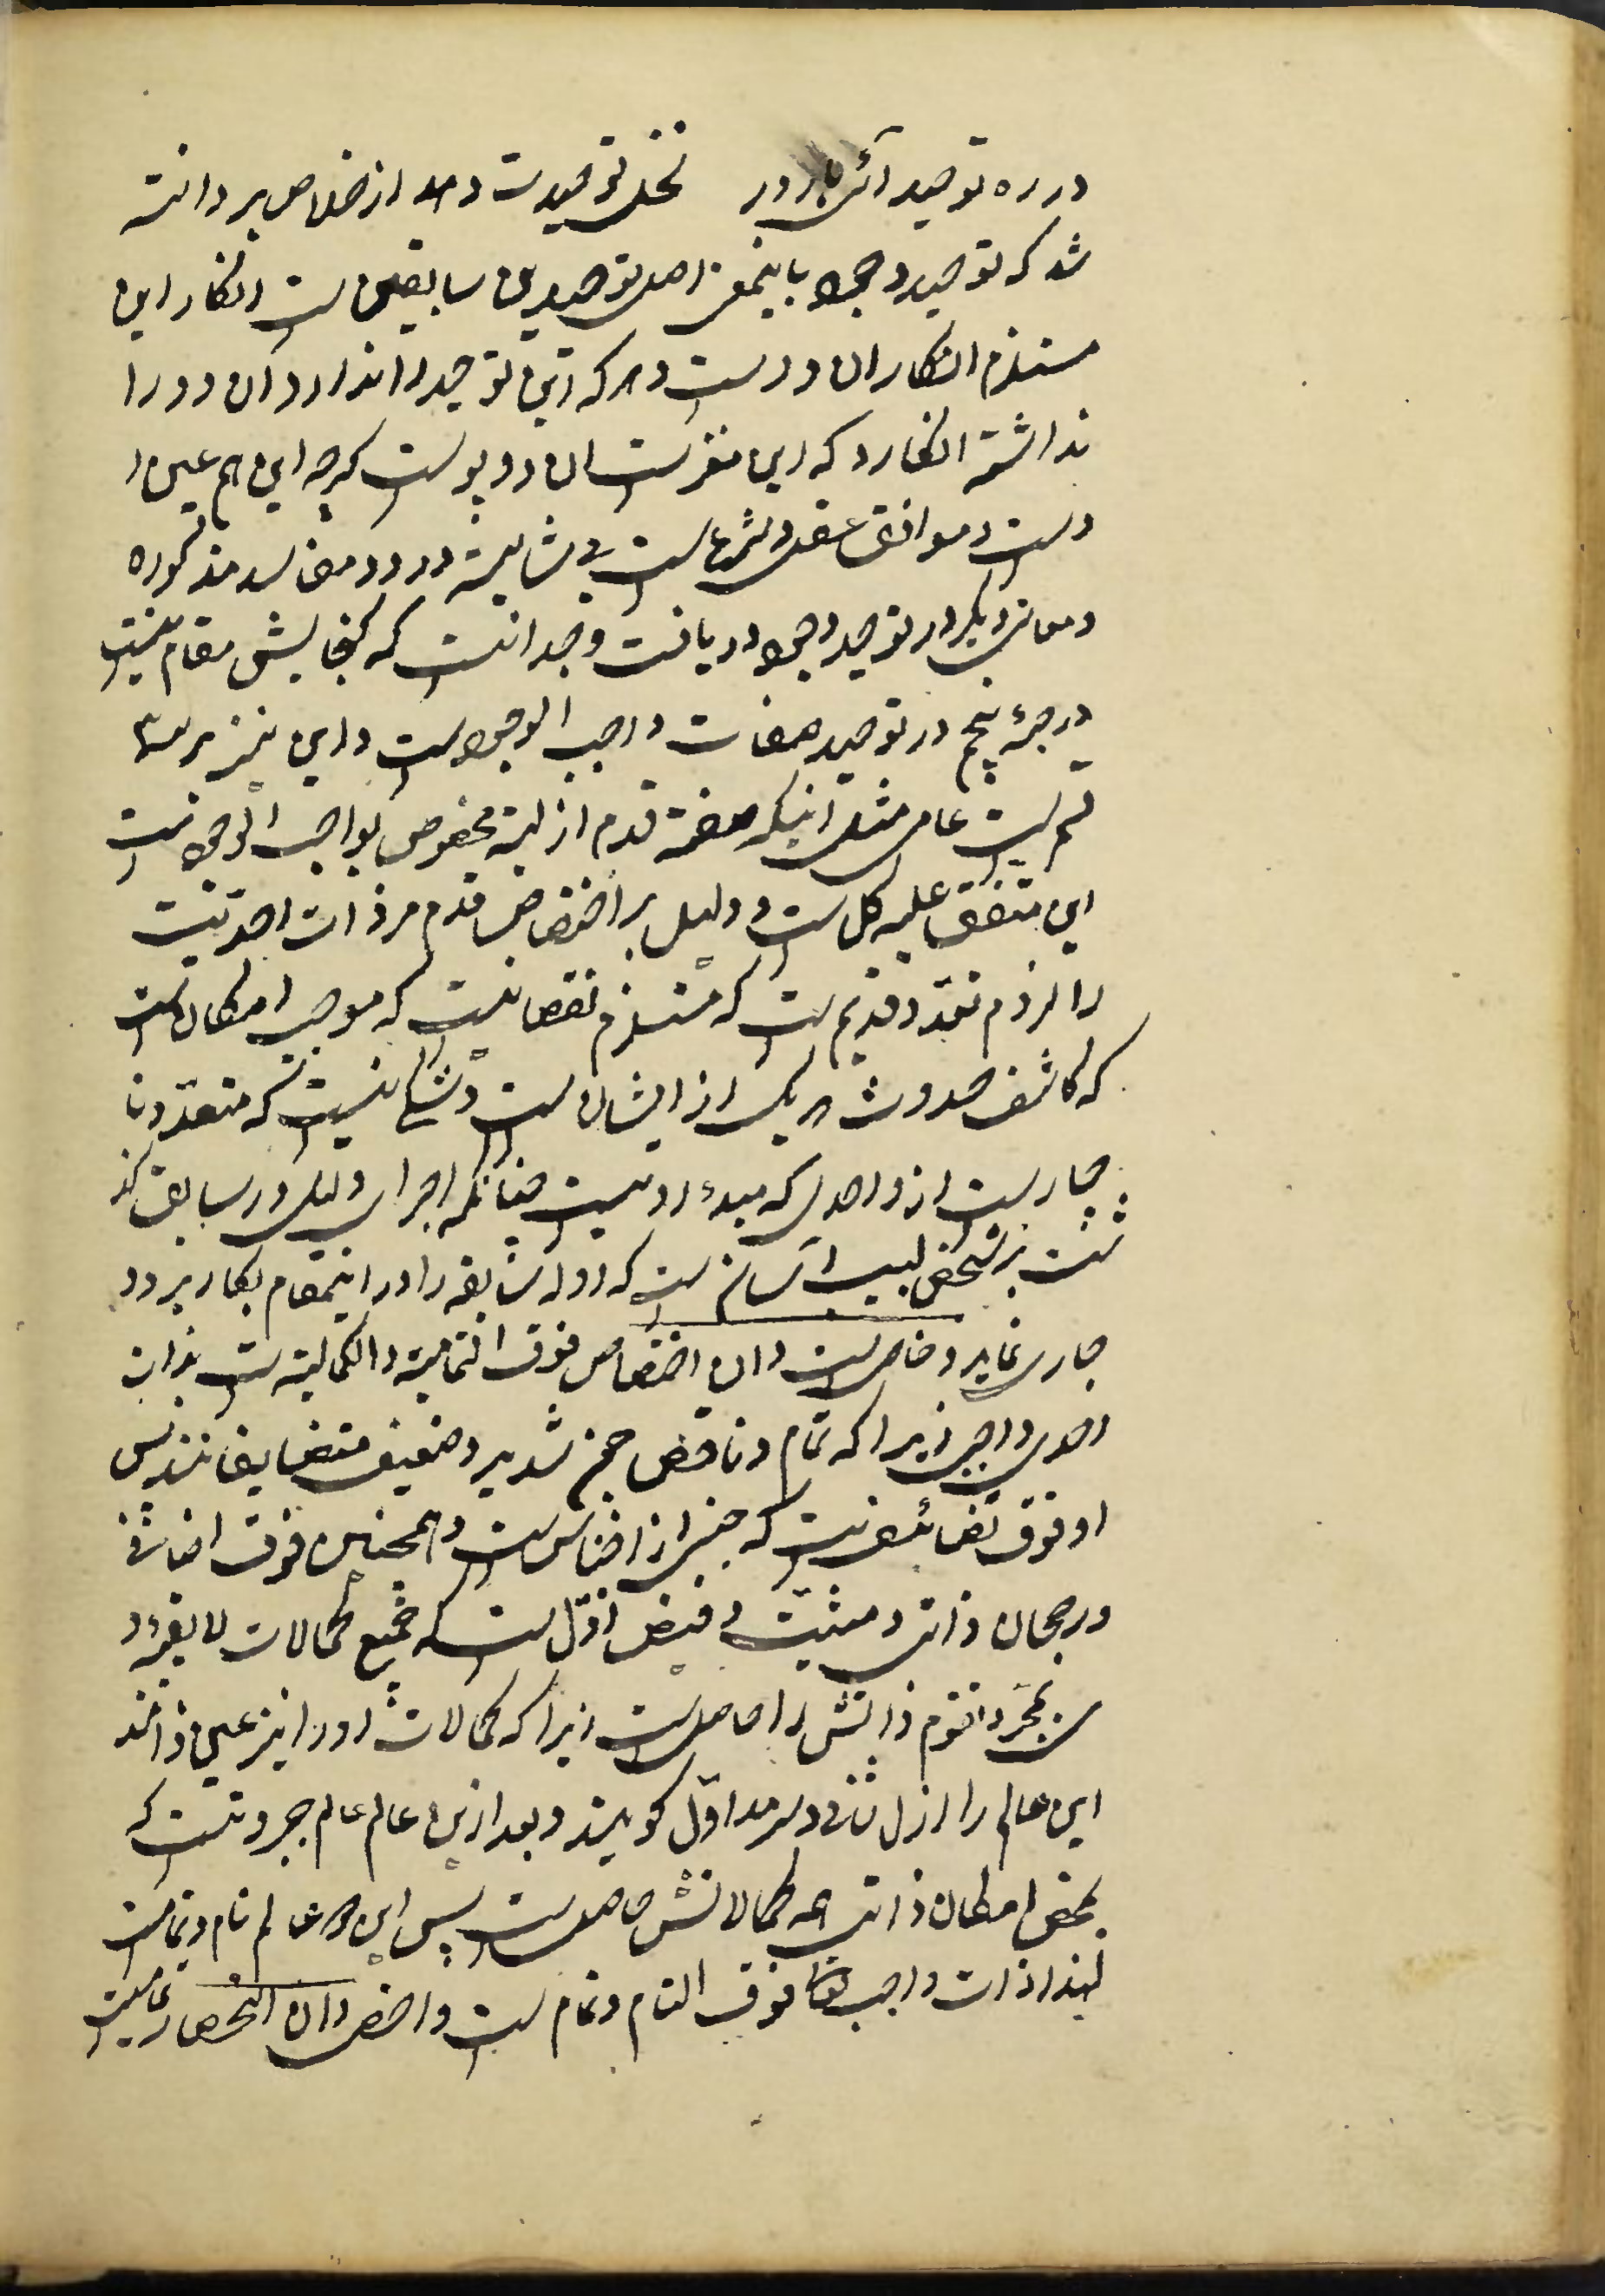 در ره توحید آئی بارور نخل توحیدت دهد از خلاص بر دانسته
شد که توحید وجود باینمعنی اصل توحیدین سابقین ست انکار این
مستلزم انکار ان دو ست و هر که این توحید را ندارد ان دو را
نداشته انکارد که این مغز ست ان دو پوست کرچه این هم عین ا
وست و موافق عقل و شرعست بی شائبه ورود مفاسد مذکوره
و معانی دیکر در توحید وجود دریافت وجدانست که کنجایش مقام نیست
درجهٔ پنجم در توحید صفات واجب الوجودست و این نیز بر سه
قسم ست عام مثل اینکه صفة قدم ازلیة مخصوص بواجب الوجودست
این متفق علیه کل ست و دلیل بر اختصاص قدم مر ذات احدیت
را لزوم تعدد قدیم ست که مستلزم نقصانیست که موجب امکان ست
که کاشف حدوث هر یک از ایشان ست و شکی نیست که متعدد نا
چارست از واحدی که مبدء او ست چنانکه اجرای دلیل در سابق کذ
شت بر شخص لبیب آسان ست که ادله سابقه را در اینمقام بکار برد و
جاری نماید و خاص ست و ان اختصاص فوق التمامیة و الکمالیة ست بذات
احدی واجبی زیرا که تمام و ناقص چون شدید و ضعیف متضایفانند پس
او فوق تضائف ست که جنسی از اجناس ست و همچنین فوق اضافی
و رجحان ذاتی و مشیّت و فیض اوّل ست که جمیع کمالات لایقه او
بمجرد تقوم ذاتش را حاصل ست زیرا که کمالات او را نیز عین ذاتند
این عالم را ازل ثانی و سرمد اوّل کویند و بعد ازین عالم عالم جبروتست که
بمحض امکان ذاتی همه کمالاتش حاصل ست پس این دو عالم تام و تمامست
لهذا ذات واجب تعالی فوق التام و تمام ست و اخص و ان انحصار تمامیت